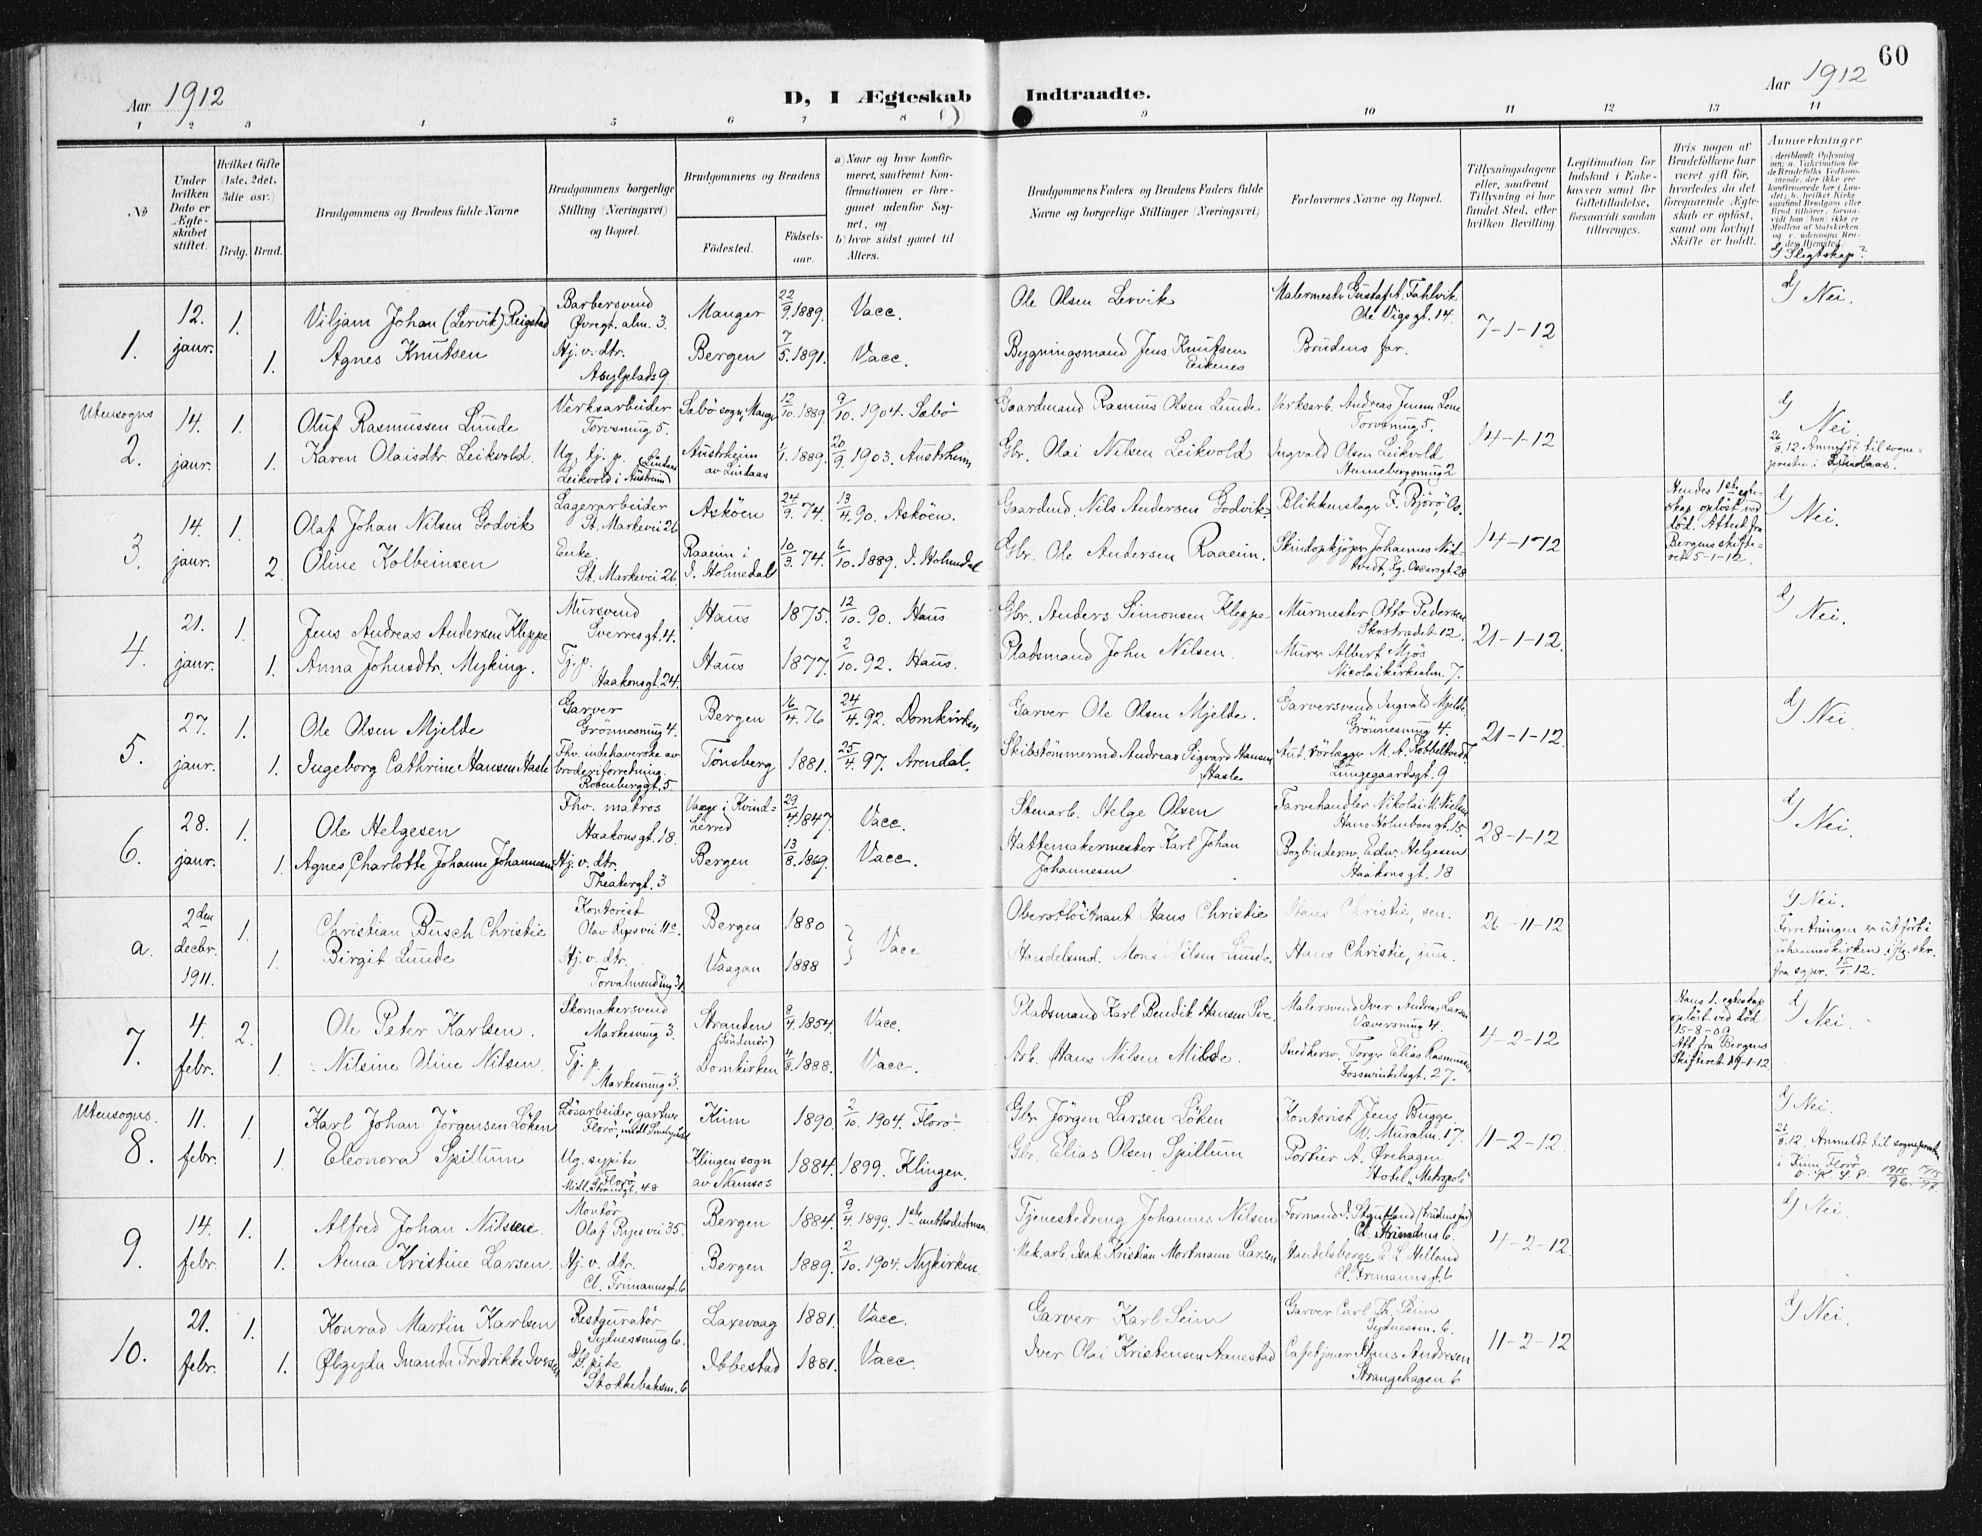 60
Aar 1912
D, I Ægteskab Indtraadte.
Aar 1912
1 2 3 4 5 6 7 8 9 10 11 12 13 14
No
Under hvilken Dato er Ægteskabet stiftet.
Hvilket Gifte (1ste, 2det, 3die osv.)
Brdg. Brud.
Brudgommens og Brudens fulde Navne
Brudgommens borgerlige Stilling (Næringsvei) og Bopæl.
Brudgommens og Brudens
Fødested.
Fødselsaar.
a) Naar og hvor konfirmeret, saafremt Konfirmationen er foregaaet udenfor Sognet, og
b) hvor sidst gaaet til Alters.
Brudgommens Faders og Brudens Faders fulde Navne og borgerlige Stillinger (Næringsvei)
Forlovernes Navne og Bopæl.
Tillysningsdagene eller, saafremt Tillysning ei har fundet Sted, efter hvilken Bevilling.
Legitimation for Indskud i Enkekassen samt for Giftetilladelse, forsaavidt saadan tiltrænges.
Hvis nogen af Brudefolkene har været gift før, hvorledes da det foregaaende Ægteskab er opløst, samt om lovligt Skifte er holdt.
Anmærkninger
d/ Slegtskap?
1. 12. jaur. 1. Viljam Johan (Lervik) Reigstad Barbersvend Øvregt. alm. 3. Manger 22/9 1889. Vacc. Ole Olsen Lervik Malermester Gustaf A. Fahlvik Ole Vigs gt. 14. 7-1-12 d/ Nei.
1. Agnes Knutsen Hj. v. dtr. Asylplads 9. Bergen 7/5 1891. Vacc. Bygningsmand Jens Knutsen Eikenes Brudens far.
Utensogns
2. 14. jaur. 1. Oluf Rasmussen Lunde Verksarbeider Torvsmug 5. Sæbø sogn, Manger 12/10 1889. 9/10 1904. Sæbø Gaardmand Rasmus Olsen Lunde Verksarb. Andreas Jensen Lone Torvsmug 5. 14-1-12 d/ Nei.
1. Karen Olaisdtr. Leikvold. Ug. tj. p. Leikvold i Austrheim Austrheim av Lindaas 1/1 1889. 20/9 1903. Austrheim Gbr. Olai Nilsen Leikvold Ingvald Olsen Leikvold Annebergsmug 2 26/8 12 Anmeldt til sognepresten i Lindaas.
3. 14. jaur. 1. Olaf Johan Nilsen Godvik Lagerarbeider St. Markevei 26 Askøen 24/9 74. 13/4 90. Askøen. Gaardmd. Nils Andersen Godvik. Blikkenslager F. Bjørø, Os. 14-1-12 Hendes 1ste egteskap opløst ved død. Attest fra Bergens skifteret 5-1-12. d/ Nei.
2. Oline Kolbeinsen Enke St. Markevei 26 Raaeim i I. Holmedal 10/3 74. 6/10 1889. I. Holmedal Gbr. Ole Andersen Raaeim. Skindopkjøper Johannes Nødtvedt, Lg. Oscarsgt 28
4. 21. jaur. 1. Jens Andreas Andersen Kleppe Mursvend Sverresgt. 4. Haus 1875. 12/10 90. Haus Gbr. Anders Simonsen Kleppe. Murmester Otto Pedersen Skostrædet 12. 21-1-12. d/ Nei.
1. Anna Johnsdtr. Myking. Tj. p. Haakonsgt. 24. Haus 1877. 2/10 92. Haus. Pladsmand John Nilsen. Murer Albert Mjøs Nicolaikirkealm. 7.
5. 27. jaur. 1. Ole Olsen Mjelde Garver Grønnesmug 4. Bergen 16/4 76 24/4 92. Domkirken, Garver Ole Olsen Mjelde. Garversvend Ingvald Mjelde Grønnesmug 4. 21-1-12. d/ Nei.
1. Ingeborg Cathrine Hansen Hasle Fhv. indehaverske av broderiforretning. Rosenberggt. 5 Tønsberg 1881. 25/4 97. Arendal. Skibstømmermd Andreas Sigvard Hansen Hasle Aut. rørlægger M. A. Kobbeltvedt Lungegaardsgt. 9
6. 28. jaur. 1. Ole Helgesen Fhv. matros Haakonsgt. 18. Vaage i Kvindherred 29/4 1847. Vacc. Stenarb. Helge Olsen Farvehandler Nikolai M. Nielsen Hans Holmboesgt. 15. 28-1-12 d/ Nei.
1. Agnes Charlotte Johanne Johannesen Hj. v. dtr. Theatergt. 3 Bergen 13/8 1869. Vacc. Hattemakermester Karl Johan Johannesen Bogbindersv. Edw. Helgesen Haakonsgt. 18
a. 2den decbr. 1911. 1. Christian Busch Christie Kontorist Olav Ryesvei 11c. Bergen 1880 } Vacc Oberstløitnant Hans Christie Hans Christie, sen. 26-11-12 d/ Nei. Forretningen er utført i Johanneskirken iflg. skr. fra sgpr. 15/1 12.
1. Birgit Lunde Hj. v. dtr. Torvalmending 31. Vaagan 1888 Handelsmd. Mons Nilsen Lunde. Hans Christie, jun.
7. 4. febr. 2. Ole Peter Karlsen. Skomakersvend Markesmug 3. Stranden (Søndmør) 8/4 1854. Vacc. Pladsmand Karl Bendik Hansen Sve. Malersvend Iver Andreas Larsen Væversmug 4. 4-2-12 Hans 1. egteskap opløst ved død 15-8-09 Att. fra Bergens Skifteret 19-1-12 d/ Nei.
1. Nilsine Oline Nilsen. Tj. p. Markesmug 3. Domkirken 4/8 1888. Vacc. Arb. Hans Nilsen Milde. Snedkersv. Torger Elias Rasmussen Fosswinkelsgt. 27.
Utensogns.
8. 11. febr. 1. Karl Johan Jørgensen Løken Løsarbeider, gartner Florø, Kinn 1890. 2/10 1904. Florø. Gbr Jørgen Larsen Løken Kontorist Jens Bugge. N. Muralm. 17. 11-2-12. d/ Nei.
1. Eleonora Spillum Ug. sypike Florø Midl. Strandgt. 48 Klingen sogn av Namsos 1884. 1899. Klingen. Gbr. Elias Olsen Spillum Portier A. Ørehagen Hotel „Metropole" 21/8 12. Anmeldt til sognepresten i Kinn, Florø
9. 14. febr. 1. Alfred Johan Nilsen. Montør Olaf Ryesvei 35. Bergen 1884. 9/4 1899. 1ste methodistmen. Tjenestedreng Johannes Nilsen Formand I. (brudens far) 4-2-12. d/ Nei.
1. Anna Kristine Larsen. Hj. v. dtr. Cl. Frimannsgt. 6 Bergen 1889. 2/10 1904 Nykirken. Mek. arb. Isak Kristian Mortmann Larsen Handelsborger E. L. Helland Cl. Frimannsgt. 6
10. 21. febr. 1. Konrad Martin Karlsen Restauratør Sydnessmug 6. Laxevaag 1881. Vacc. Garver Karl Seim Garver Carl Th. Seim Sydnessm. 6. 11-2-12 d/ Nei.
1. Øbgyda Inanda Fredrikke Iversen Sypike Stokkebaksm. 6 Ibbestad 1881. Vacc. Iver Olai Kristensen Aanestad Cafetjener Hans Andresen Strangehagen 6